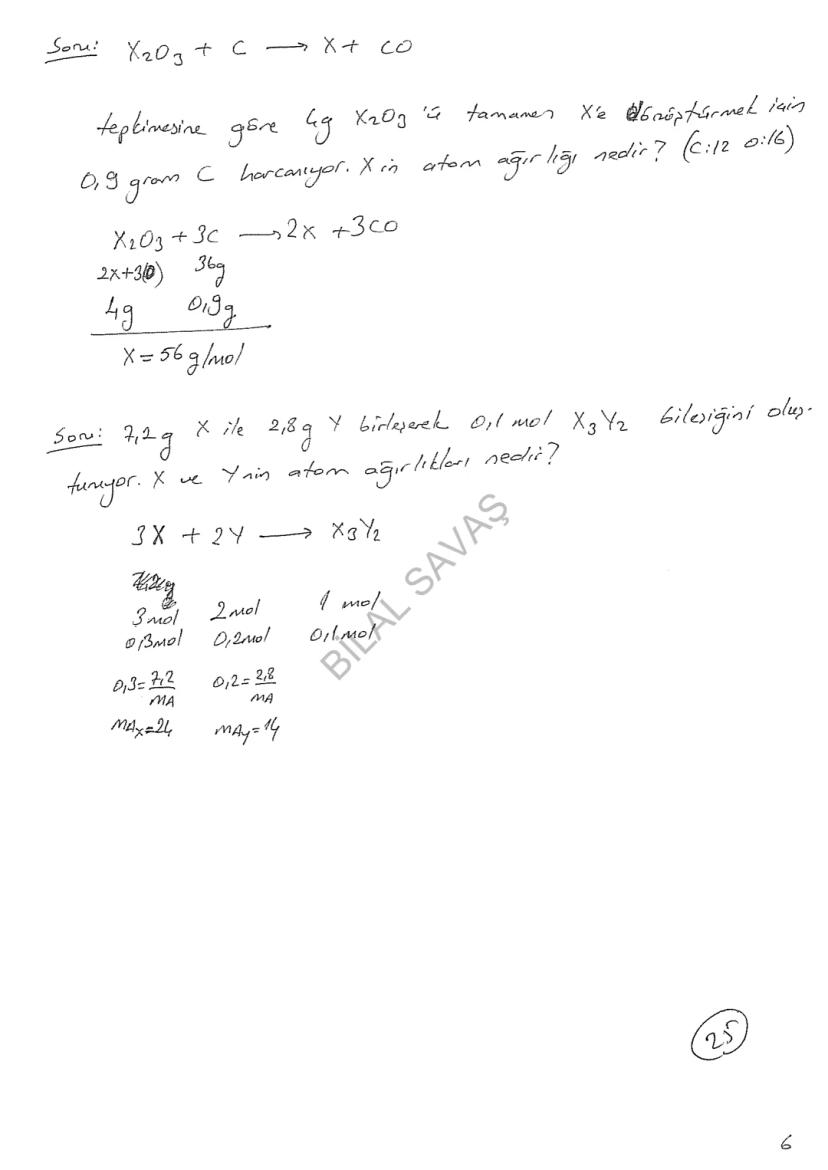 Soru: X2O3 + C → X + CO
tepkimesine göre 4g X2O3 'ü tamamen X'e dönüştürmek için
0,9 gram C harcanıyor. X in atom ağırlığı nedir? (C:12 O:16)
X2O3 + 3C → 2X + 3CO
2X+3(O) 36g
4g 0,9g
X = 56 g/mol
Soru: 7,2g X ile 2,8g Y birleşerek 0,1 mol X3Y2 bileşiğini oluş-
turuyor. X ve Y nin atom ağırlıkları nedir?
3X + 2Y → X3Y2
3mol 2mol 1 mol
0,3mol 0,2mol 0,1mol
0,3 = 7,2/MA 0,2 = 2,8/MA
MAx=24 MAy=14
BİLAL SAVAŞ
25
6